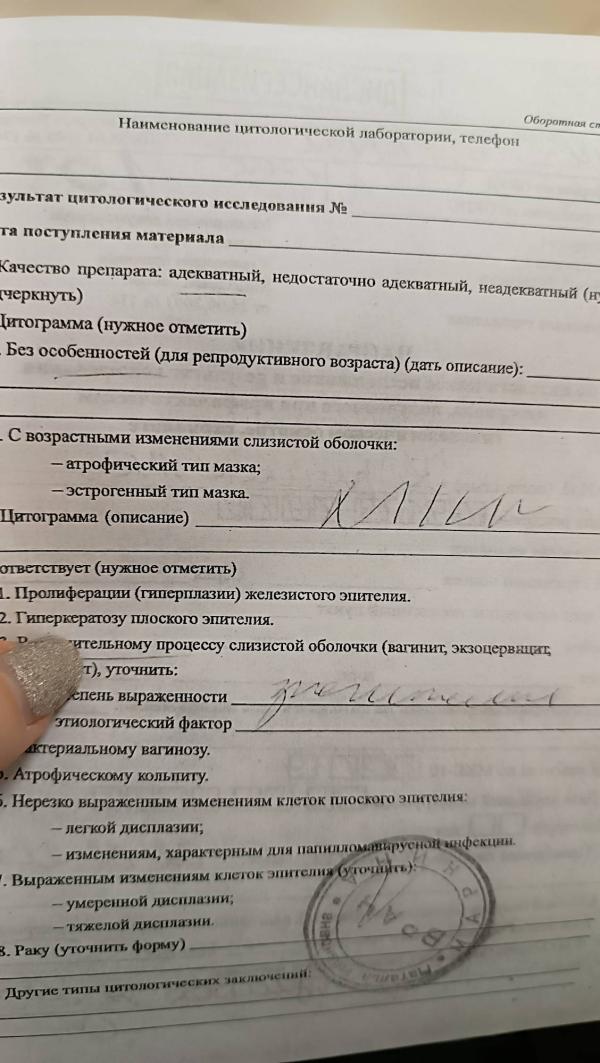 Оборотная ст
Наименование цитологической лаборатории, телефон
зультат цитологического исследования №
та поступления материала
Качество препарата: адекватный, недостаточно адекватный, неадекватный (ну
дчеркнуть)
Цитограмма (нужное отметить)
. Без особенностей (для репродуктивного возраста) (дать описание):
. С возрастными изменениями слизистой оболочки:
— атрофический тип мазка;
— эстрогенный тип мазка.
Цитограмма (описание)
ответствует (нужное отметить)
1. Пролиферации (гиперплазии) железистого эпителия.
2. Гиперкератозу плоского эпителия.
ительному процессу слизистой оболочки (вагинит, экзоцервицит,
т), уточнить:
епень выраженности
этиологический фактор
актериальному вагинозу.
. Атрофическому кольпиту.
6. Нерезко выраженным изменениям клеток плоского эпителия:
— легкой дисплазии;
— изменениям, характерным для папилломавирусной инфекции.
7. Выраженным изменениям клеток эпителия (уточнить):
— умеренной дисплазии;
— тяжелой дисплазии.
8. Раку (уточнить форму)
Другие типы цитологических заключений: